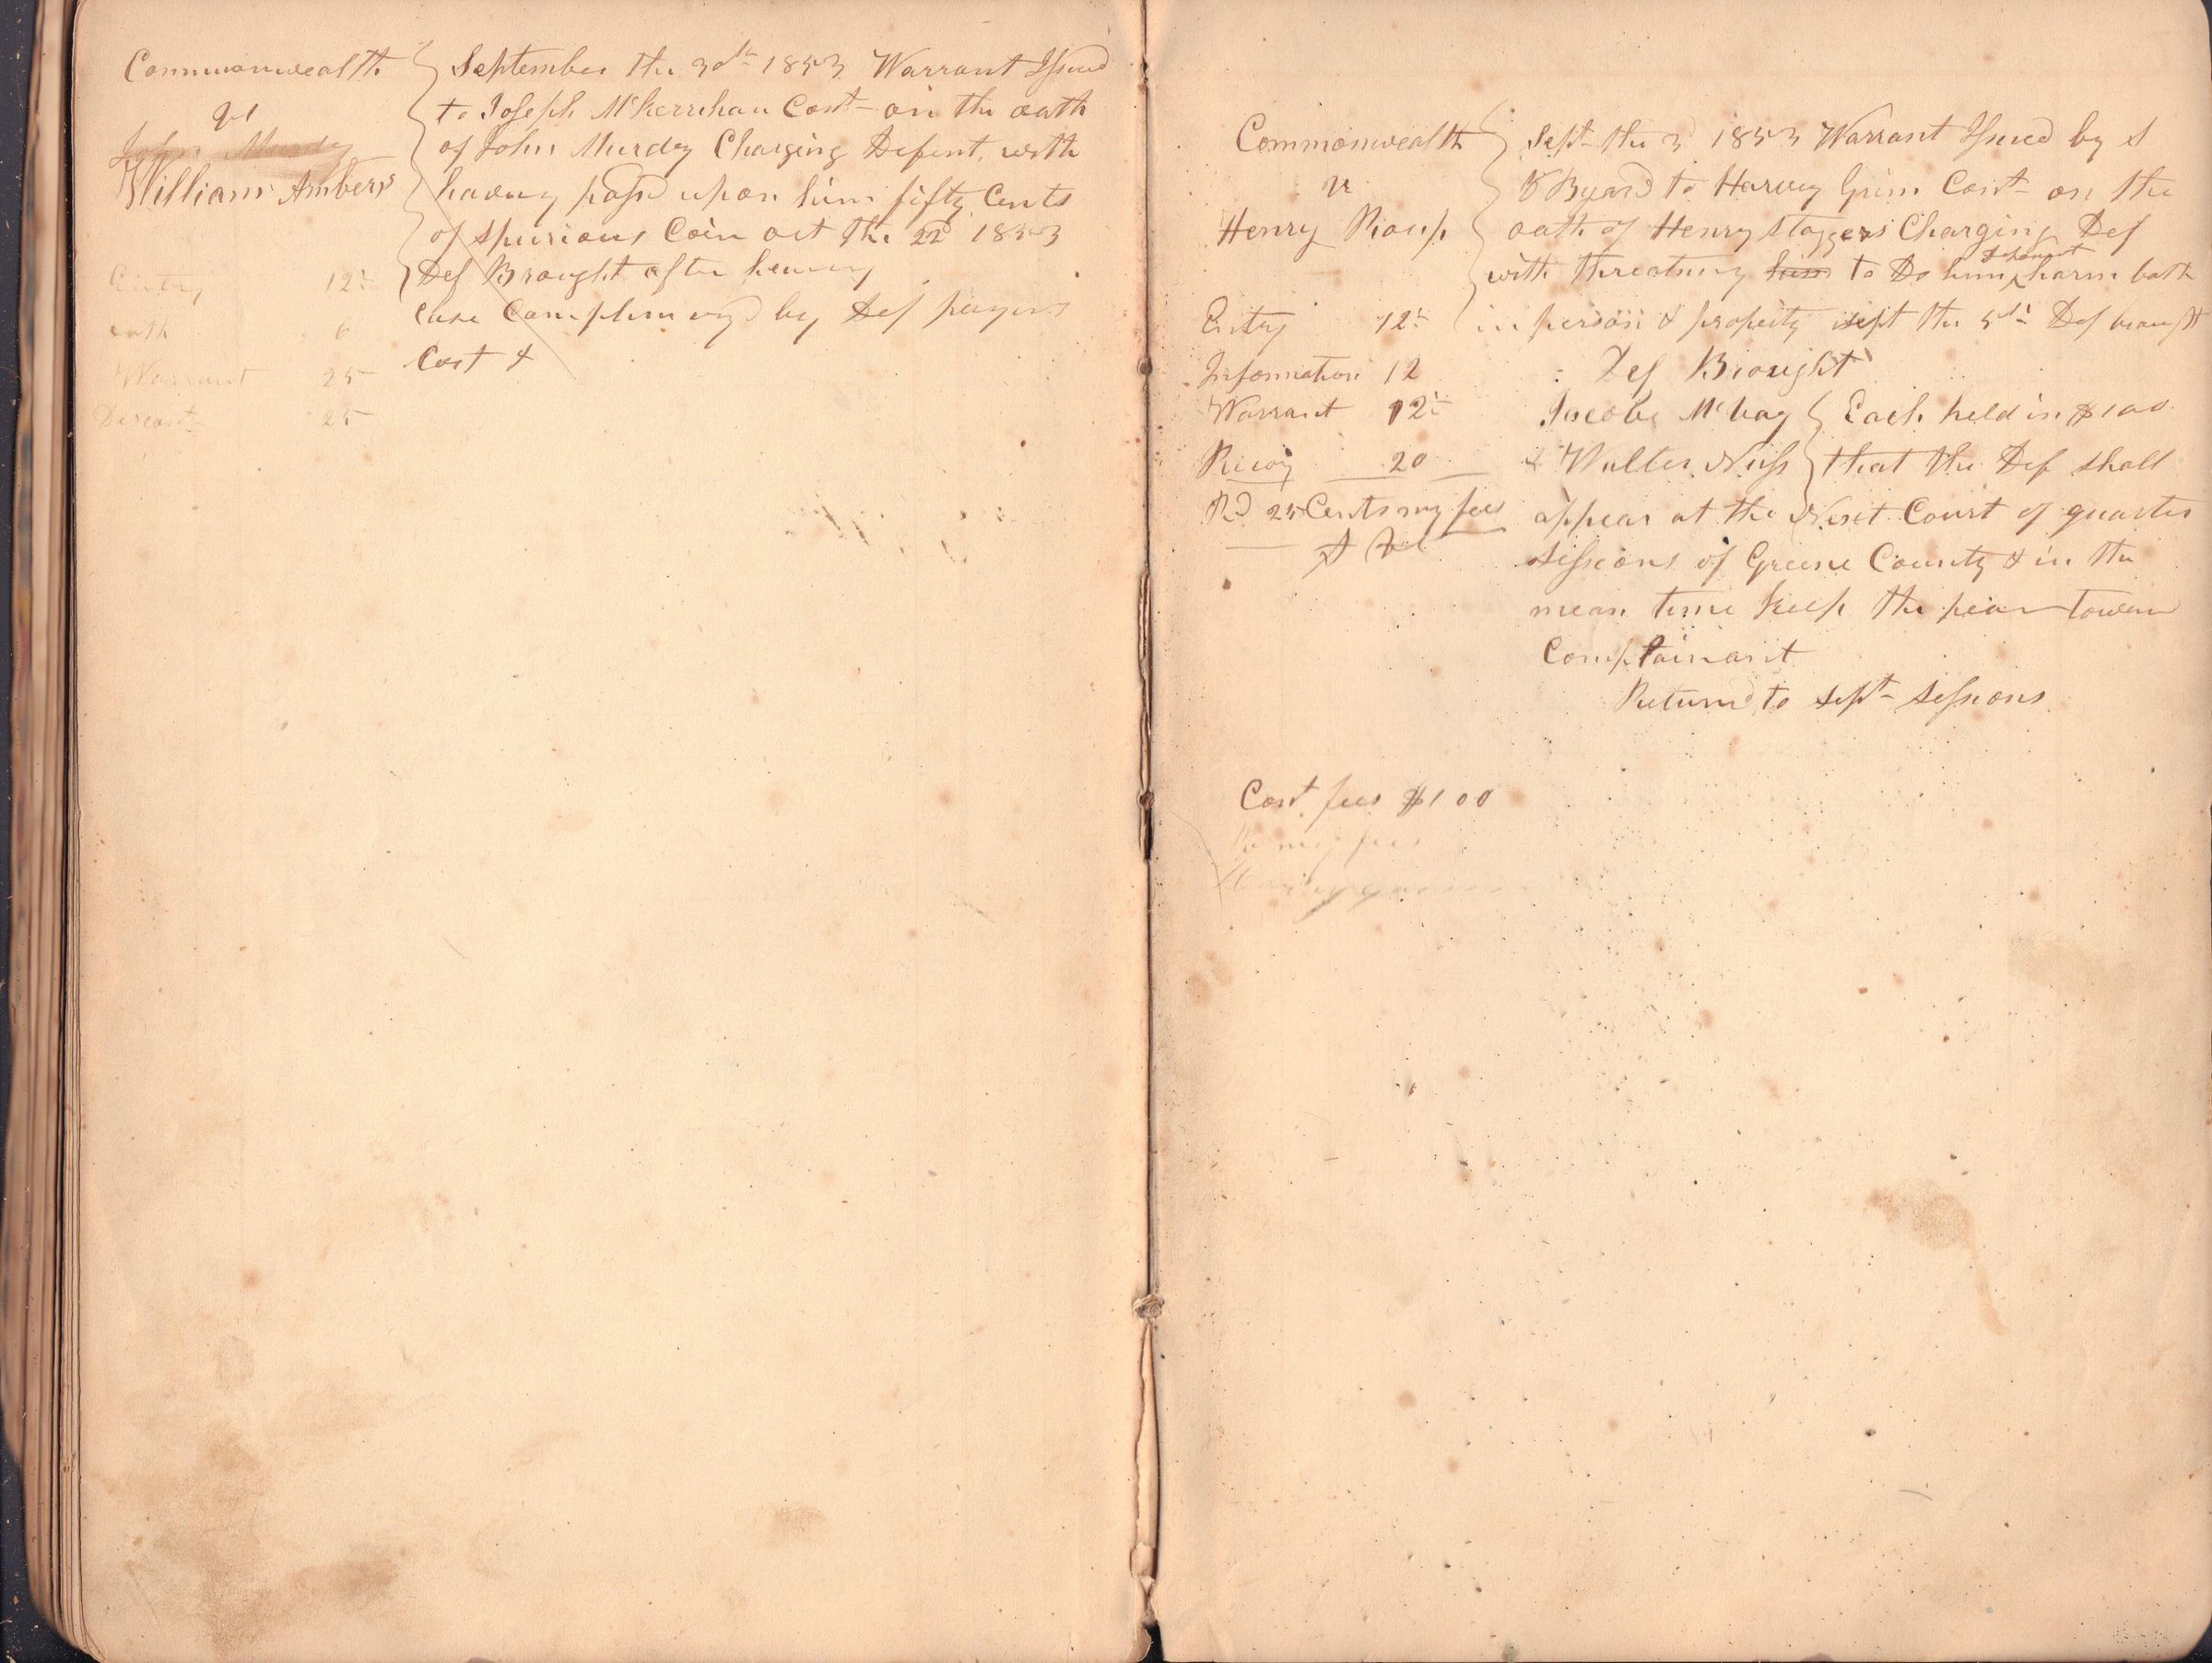 Commonwealth
vs
John Murdy
William Ambers
September the 3d 1853 Warrant Issued
to Joseph McKerrihan Const on the oath
of John Murdy Charging Defent. with
having passd upon him fifty Cents
of spurious Coin oct the 22d 1853
Def Brought after hearing
Case by Def paying
Cost &
Entry 12½
oath 6
Warrant 25
25
Commonwealth
vs
Henry Roup
Sept the 3 1853 Warrant Issued by S
Byard to Harvey Grim Const on the
oath of Henry Staggers Charging Def
with threatning him to Do him harm both
in person & property sept the 5th Def brought
Def Brought
Jacob McVay Each held in $100
& Walter Nuss that the Def shall
appear at the Next Court of quarter
sessions of Greene County & in the
mean time keep the peace toward
Complainant
Returnd to Sept Sessions
Entry 12½
Information 12
Warrant 12½
Recog 20
Rd 25 Cents my fees
Const fees $1 00
my fees